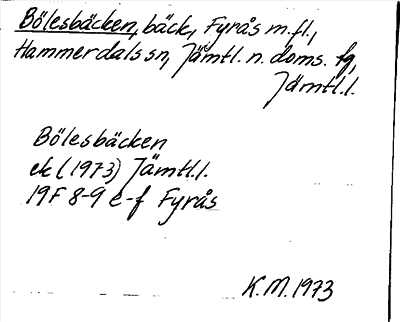 Bölesbäcken, bäck, Fyrås m.fl.,
Hammerdals sn, Jämtl. n. doms. fg,
Jämtl.l.
Bölesbäcken
ek (1973) Jämtl.l.
19F 8-9 e-f Fyrås
K.M. 1973